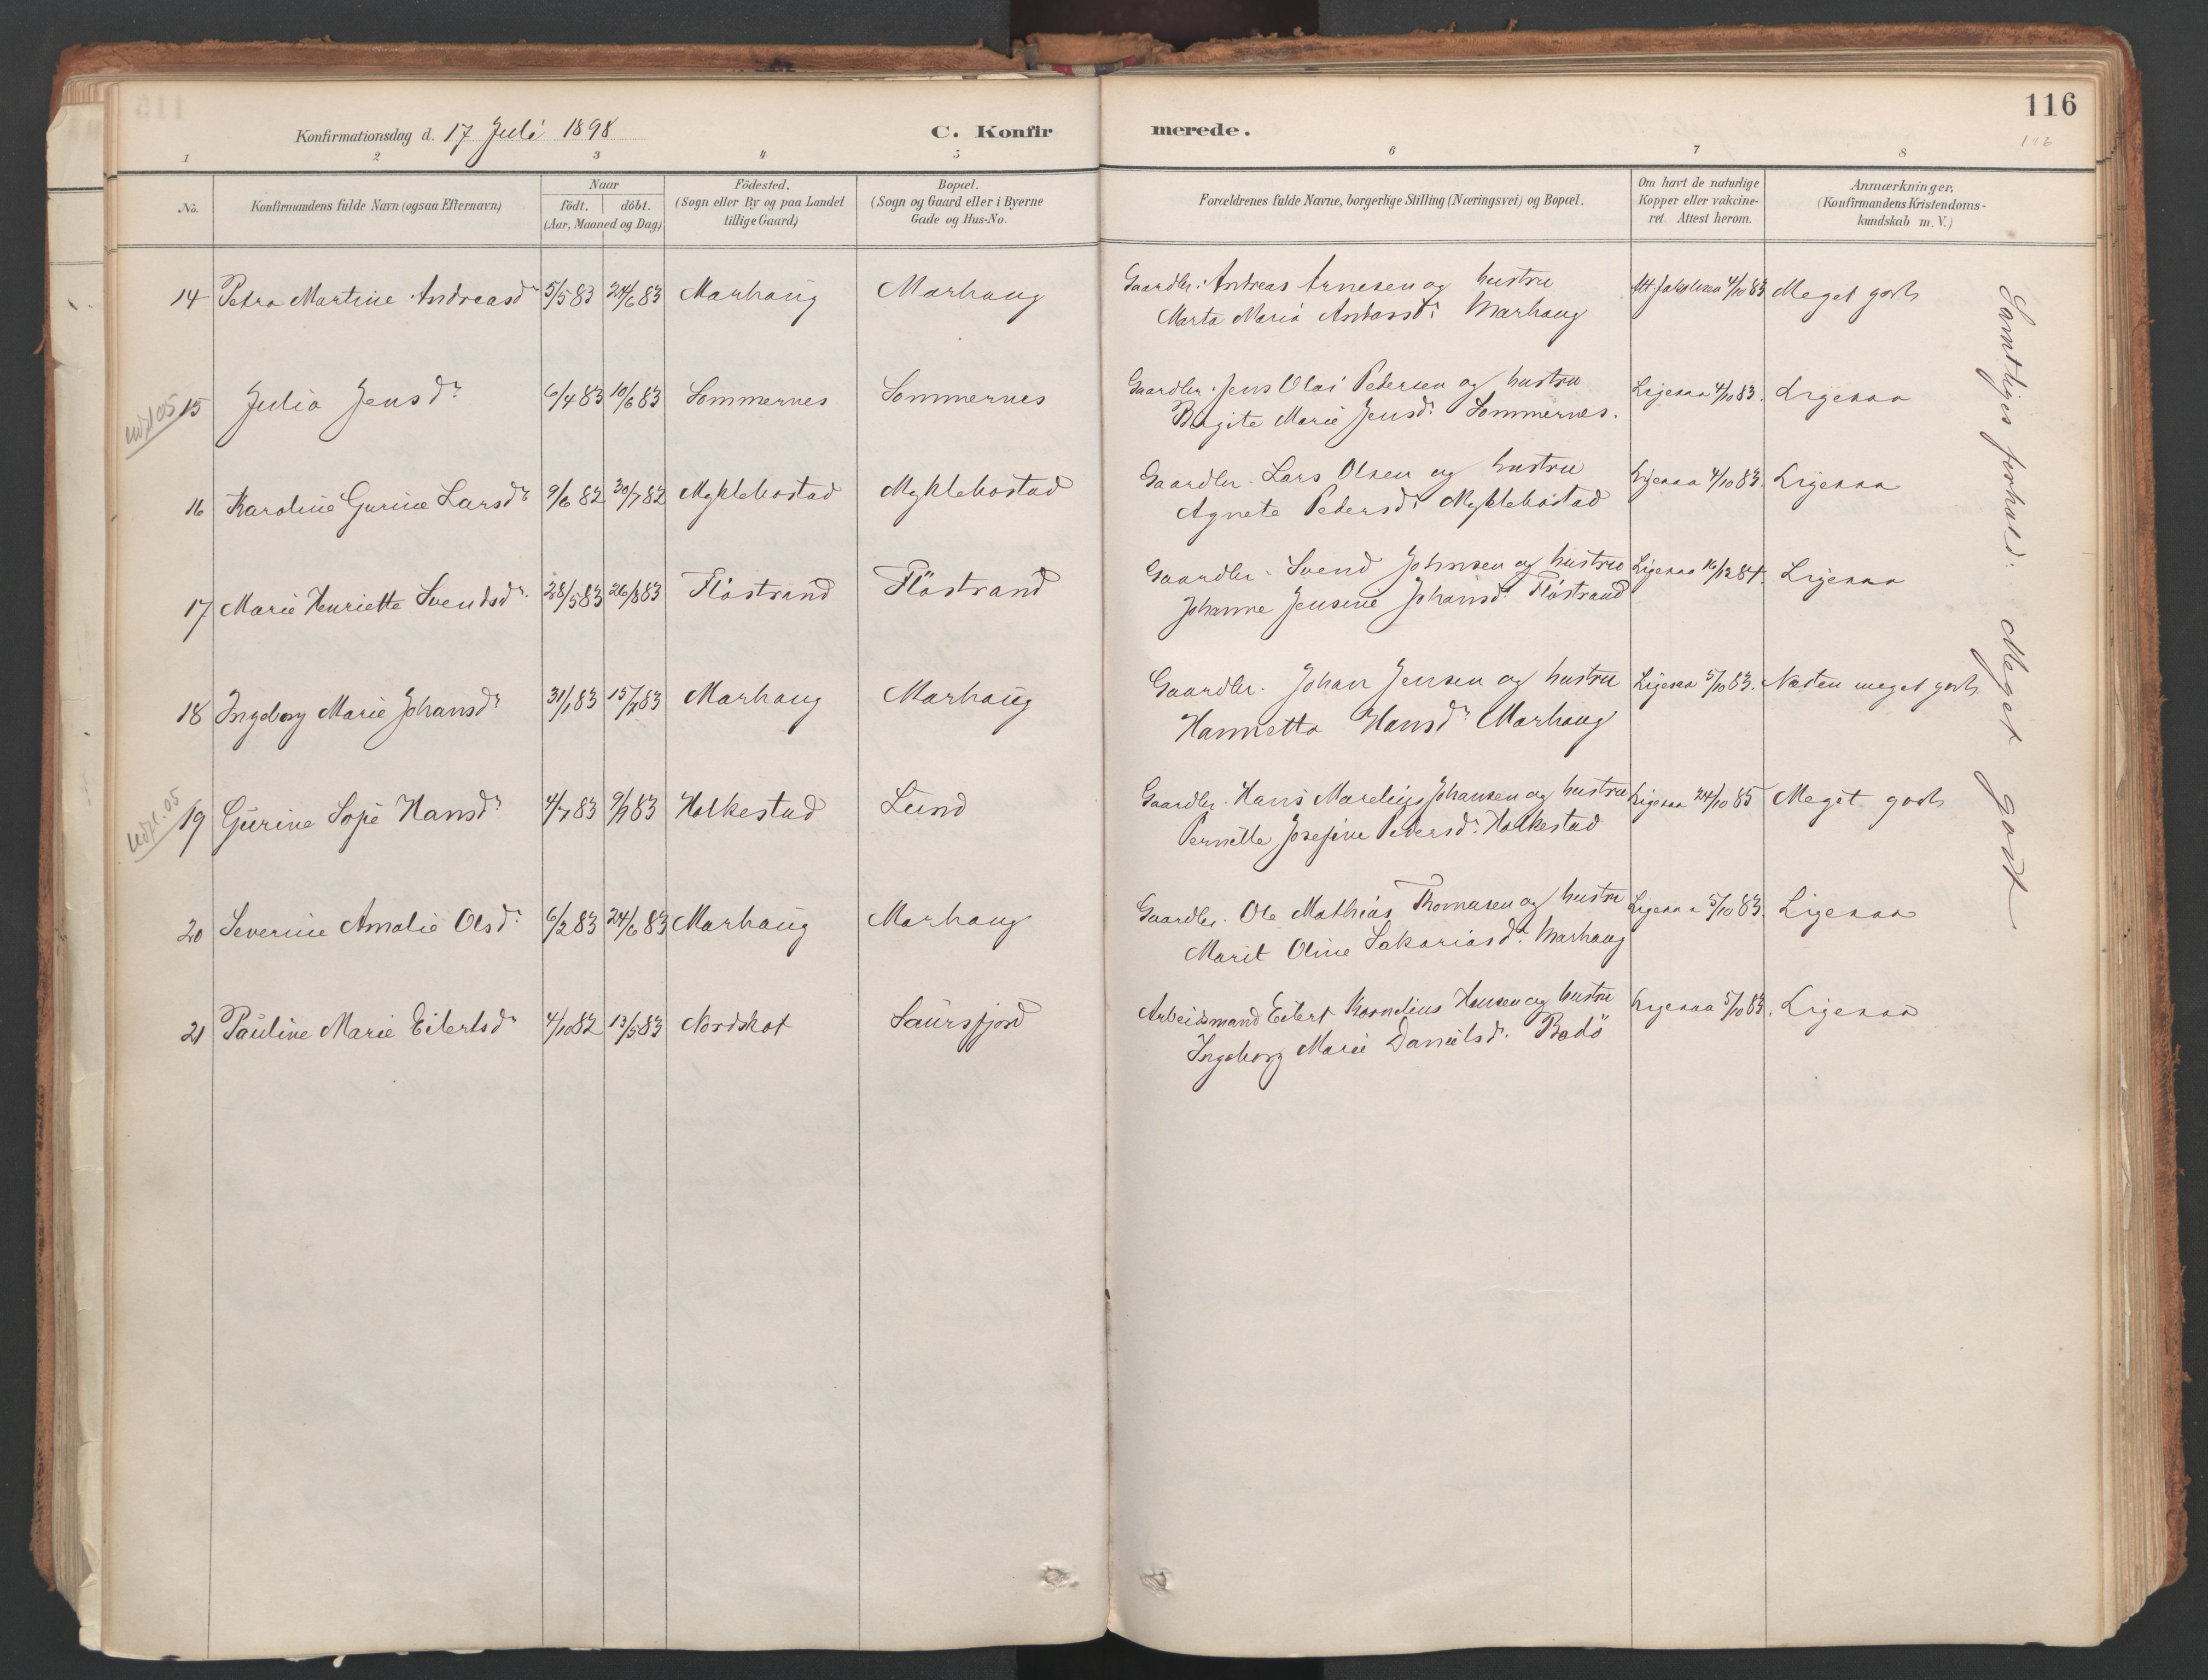 116
116
Konfirmationsdag d. 17 Juli 1898
C. Konfir
merede.
1 2 3 4 5 6 7 8
No.
Konfirmandens fulde Navn (ogsaa Efternavn)
Naar
födt.
döbt.
(Aar, Maaned og Dag)
Födested.
(Sogn eller By og paa Landet
tillige Gaard)
Bopæl.
(Sogn og Gaard eller i Byerne
Gade og Hus-No.
Forældrenes fulde Navne, borgerlige Stilling (Næringsvei) og Bopæl.
Om havt de naturlige
Kopper eller vakcine-
ret. Attest herom.
Anmærkninger.
(Konfirmandens Kristendoms-
kundskab m. V.)
14 Petra Martine Andreasdr 5/5 83 24/6 83 Marhaug Marhaug Gaardbr. Andreas Arnesen og hustru Att Jakobsen 4/10 83 Meget godt
Marta Maria Antonsdr Marhaug
15 Julia Jensdr 6/4 83 10/6 83 Sommernes Sommernes Gaardbr. Jens Olai Pedersen og hustru Ligesaa 4/10 83. Ligesaa
Birgite Marie Jensdr Sommernes.
16 Karoline Gurine Larsdr 9/6 82 30/7 82 Myklebostad Myklebostad Gaardbr. Lars Olsen og hustru Ligesaa 4/10 83. Ligesaa
Agnete Pedersdr Myklebostad
17 Marie Henriette Svendsdr. 28/5 83 26/8 83 Flöstrand Flöstrand Gaardbr. Svend Johnsen og hustru Ligesaa 16/12 84. Ligesaa
Johanne Jensine Johansdr Flöstrand
18 Ingeborg Marie Johansdr 31/1 83 15/7 83 Marhaug Marhaug Gaardbr. Johan Jensen og hustru Ligesaa 5/10 83. Næsten meget godt
Hannetta Hansdr Marhaug
19 Gurine Sofie Hansdr 4/7 83 9/9 83 Holkestad Lund Gaardbr. Hans Marelius Johansen og hustru Ligesaa 24/10 85 Meget godt
Pernille Josefine Pedersdr. Holkestad
20 Severine Amalie Olsdr 6/3 83 24/6 83 Marhaug Marhaug Gaardbr. Ole Mathias Thomasen og hustru Ligesaa 5/10 83. Ligesaa
Marit Oline Sakariasdr. Marhaug
21 Pauline Marie Eilertsdr 4/10 82 13/5 83 Nordskot Saursfjord Arbeidsmand Eilert Kornelius Hansen og hustru Ligesaa 5/10 83. Ligesaa
Ingeborg Marie Danielsdr. Bodö
Samtliges forhold: Meget godt